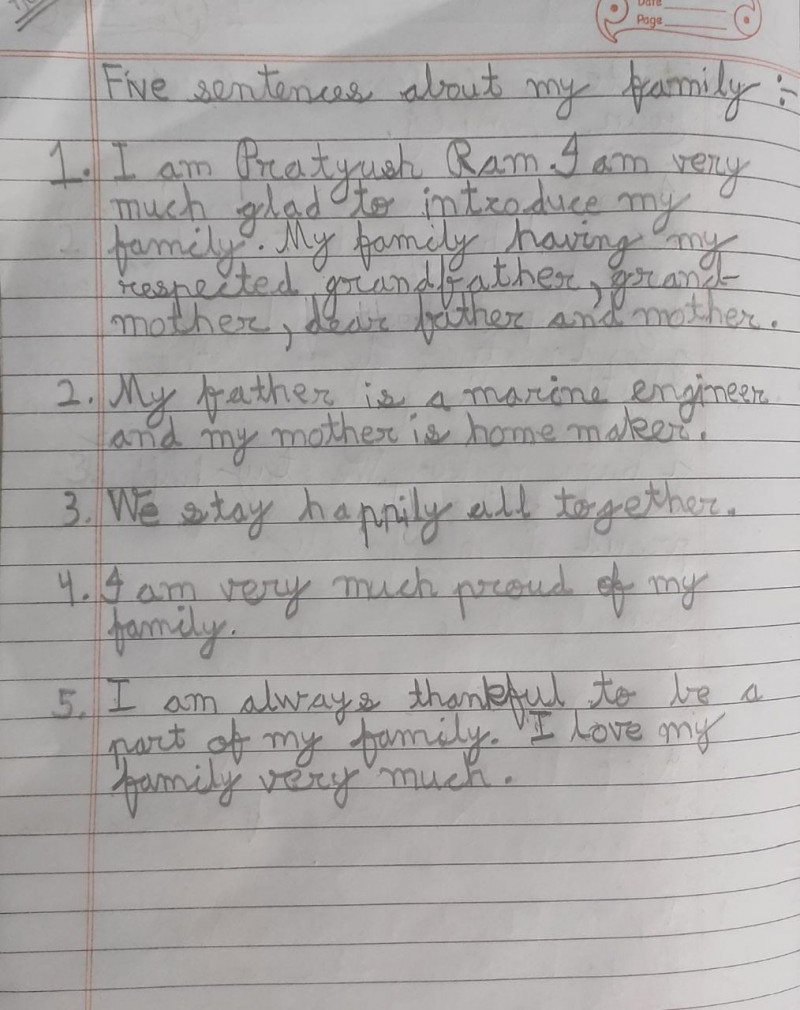 Date
Page
Five sentences about my family :-
1. I am Pratyush Ram. I am very
much glad to introduce my
family. My family having my
respected grandfather, grand-
mother, dear father and mother.
2. My father is a marine engineer
and my mother is home maker.
3. We stay happily all together.
4. I am very much proud of my
family.
5. I am always thankful to be a
part of my family. I love my
family very much.